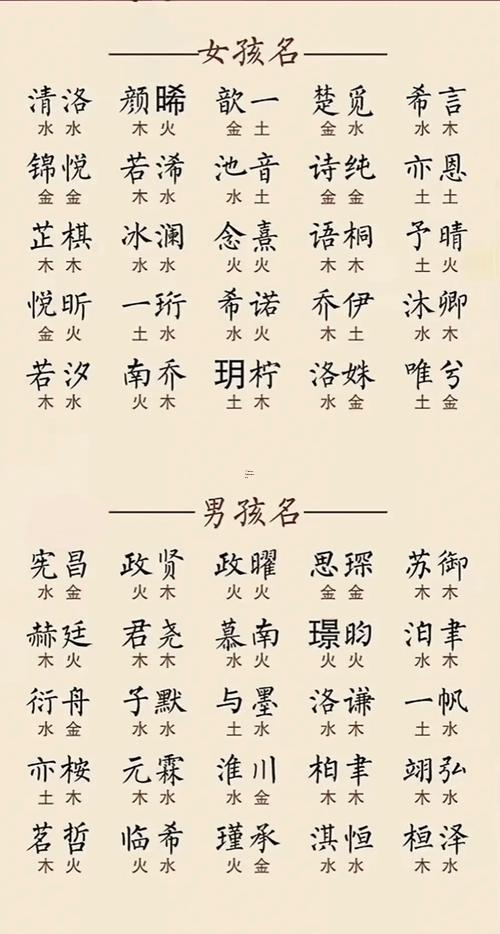 女孩名
清洛 颜晞 歆一 楚觅 希言
水水 木火 金土 金水 水木
锦悦 若浠 池音 诗纯 亦恩
金金 木水 水土 金金 土土
芷棋 冰澜 念熹 语桐 予晴
木木 水水 火火 木木 土火
悦昕 一珩 希诺 乔伊 沐卿
金火 土水 水火 木土 水木
若汐 南乔 玥柠 洛姝 唯兮
木水 火木 土木 水金 土金
男孩名
宪昌 政贤 政曜 思琛 苏御
水金 火木 火火 金金 木木
赫廷 君尧 慕南 璟昀 泊聿
木火 木木 水火 火火 水木
衍舟 子默 与墨 洛谦 一帆
水金 水水 土水 水木 土水
亦桉 元霖 淮川 柏聿 翊弘
土木 木水 水金 木木 木水
茗哲 临希 瑾承 淇恒 桓泽
木火 火水 火金 水水 木水